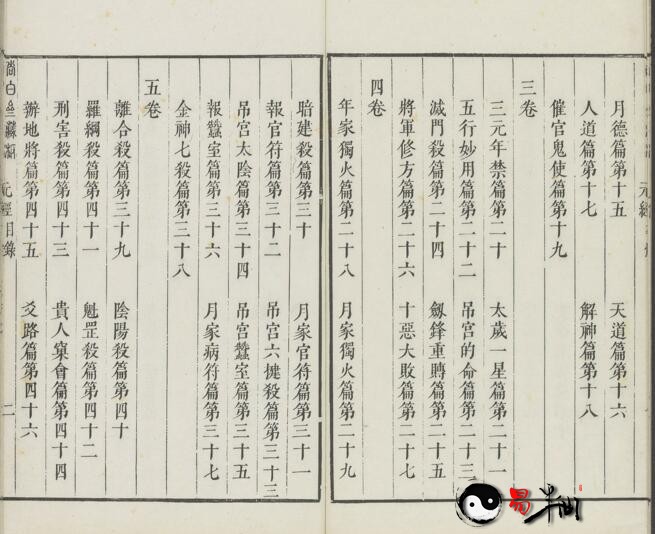 月德篇第十五 天道篇第十六
人道篇第十七 解神篇第十八
催官鬼使篇第十九
三卷
三元年禁篇第二十 太歲一星篇第二十一
五行妙用篇第二十二 吊宮的命篇第二十三
滅門殺篇第二十四 劔鋒重賻篇第二十五
將軍修方篇第二十六 十惡大敗篇第二十七
四卷
年家獨火篇第二十八 月家獨火篇第二十九
暗建殺篇第三十 月家官符篇第三十一
報官符篇第三十二 吊宮六揵殺篇第三十三
吊宮太陰篇第三十四 吊宮蠶室篇第三十五
報蠶室篇第三十六 月家病符篇第三十七
金神七殺篇第三十八
五卷
離合殺篇第三十九 陰陽殺篇第四十
羅綱殺篇第四十一 魁罡殺篇第四十二
刑害殺篇第四十三 貴人窠會篇第四十四
辦地將篇第四十五 爻路篇第四十六
元經目錄 二
易半仙